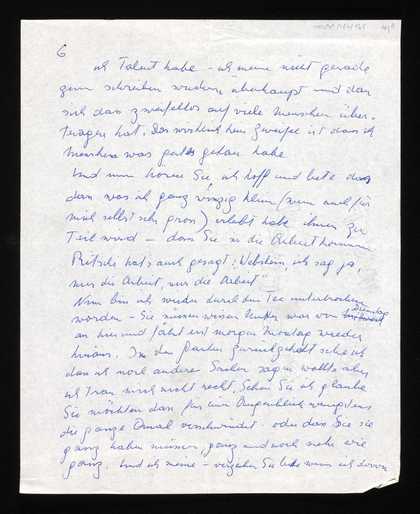 6
ich Talent habe – ich meine nicht gerade
zum schreiben sondern überhaupt und dan
sich das zweifellos auf viele Menschen über-
tragen hat. Das wirklich kein Zweifel ist dass ich
Menschen was gutes getan habe
Und nun hören Sie, ich hoff und bete dass
dem was ich ganz winzig klein (wenn auch für
mich selbst sehr gross) erlebt habe ihnen zu
Teil wird – dass Sie in die Arbeit kommen
hat's auch gesagt: ich sag ja,
nur die Arbeit, nur die Arbeit
Nun bin ich wieder durch den Tee unterbrochen
worden – Sie müssen wissen war von
an hier und fährt erst morgen Montag wieder
hinaus. In den Garten zurückgekehrt sehe ich
dass ich noch andere Sachen sagen wollte aber
ich trau mich nicht recht. Sehen Sie ich glaube
Sie möchten dass für ein Augenblick wenigstens
die ganze Qual verschwindet – oder dass Sie sie
ganz haben müssen, ganz und noch mehr wie
ganz. Und ich meine – verzeihen Sie bitte wenn ich davon